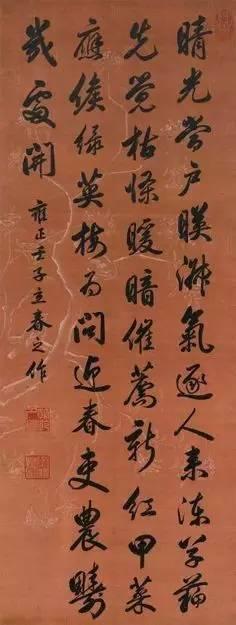 晴光當戶暎淑氣逐人来凍草蘓
先覺枯條暖暗催薦新紅甲菜
應候綠英梅為問迎春吏農疇
幾處開
雍正壬子立春之作